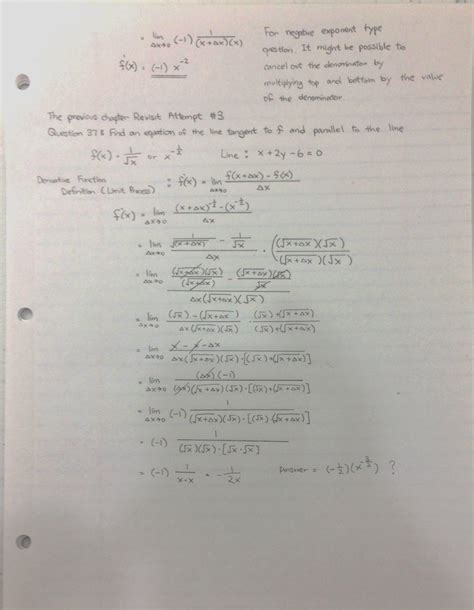 = lim Δx→0 (-1) 1/((x+Δx)(x))
f'(x) = (-1) x^-2
For negative exponent type
question. It might be possible to
cancel out the denominator by
multiplying top and bottom by the value
of the denominator.
The previous chapter Revisit Attempt #3
Question 37: Find an equation of the line tangent to f and parallel to the line
f(x) = 1/√x or x^(-1/2) Line: x + 2y - 6 = 0
Derivative Function
Definition (Limit Process) : f'(x) = lim Δx→0 (f(x+Δx) - f(x))/Δx
f'(x) = lim Δx→0 ((x+Δx)^(-1/2) - (x^(-1/2)))/Δx
= lim Δx→0 (1/√(x+Δx) - 1/√x)/Δx · ((√x+Δx)(√x))/((√x+Δx)(√x))
= lim Δx→0 ((√x+Δx)(√x)/(√x+Δx) - (√x)(√x+Δx)/√x)/(Δx(√x+Δx)(√x))
= lim Δx→0 ((√x) - (√x+Δx))/(Δx(√x+Δx)(√x)) · ((√x)+(√x+Δx))/((√x)+(√x+Δx))
= lim Δx→0 (x - x - Δx)/(Δx(√x+Δx)(√x)·[(√x)+(√x+Δx)])
= lim Δx→0 ((Δx)(-1))/((Δx)(√x+Δx)(√x)·[(√x)+(√x+Δx)])
= lim Δx→0 (-1) 1/((√x+Δx)(√x)·[(√x)(√x+Δx)])
= (-1) 1/((√x)(√x)·[√x·√x])
= (-1) 1/(x·x) = -1/(2x) Answer = (-1/2)(x^(-3/2)) ?